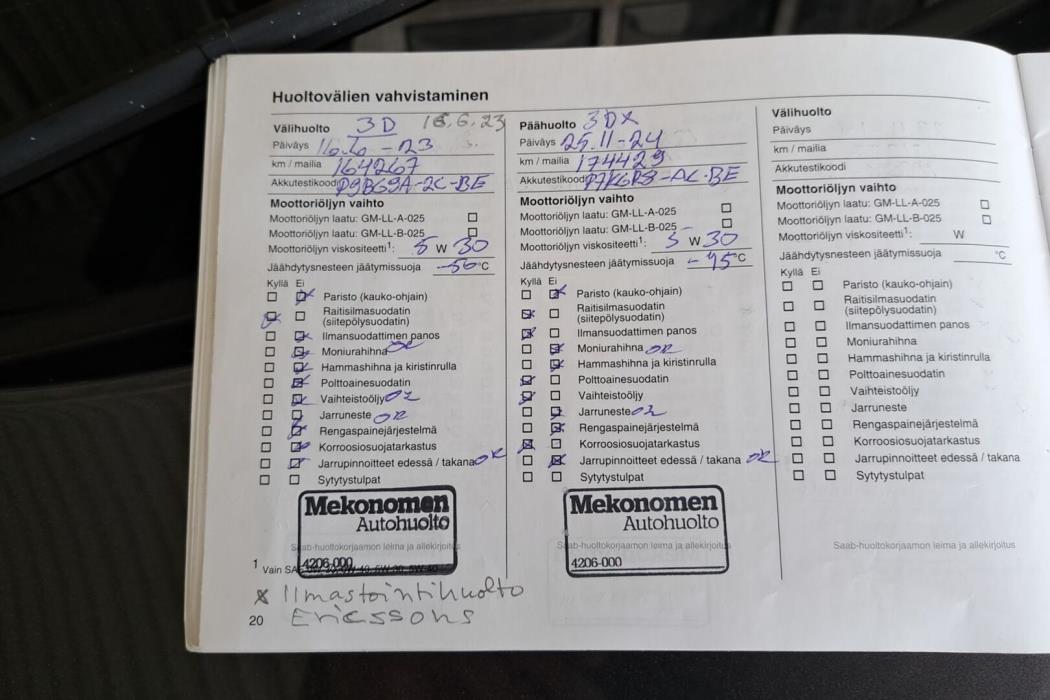 Huoltovälien vahvistaminen
Välihuolto 3D 16.6.23
Päiväys 16.6-23
km / mailia 164267
Akkutestikoodi P9B69A-2C-BE
Moottoriöljyn vaihto
Moottoriöljyn laatu: GM-LL-A-025
Moottoriöljyn laatu: GM-LL-B-025
Moottoriöljyn viskositeetti¹: 5 W 30
Jäähdytysnesteen jäätymissuoja -50 °C
Kyllä Ei
Paristo (kauko-ohjain)
Raitisilmasuodatin
(siitepölysuodatin)
Ilmansuodattimen panos
Moniurahihna OK
Hammashihna ja kiristinrulla
Polttoainesuodatin
Vaihteistoöljy OK
Jarruneste OK
Rengaspainejärjestelmä
Korroosiosuojatarkastus
Jarrupinnoitteet edessä / takana OK
Sytytystulpat
Mekonomen
Autohuolto
Saab-huoltokorjaamon leima ja allekirjoitus
4206-000
¹ Vain SAE
x Ilmastointihuolto
Ericssons
20
Päähuolto 3DX
Päiväys 25.11-24
km / mailia 174429
Akkutestikoodi
Moottoriöljyn vaihto
Moottoriöljyn laatu: GM-LL-A-025
Moottoriöljyn laatu: GM-LL-B-025
Moottoriöljyn viskositeetti¹: 5 W 30
Jäähdytysnesteen jäätymissuoja -45 °C
Kyllä Ei
Paristo (kauko-ohjain)
Raitisilmasuodatin
(siitepölysuodatin)
Ilmansuodattimen panos
Moniurahihna OK
Hammashihna ja kiristinrulla
Polttoainesuodatin
Vaihteistoöljy
Jarruneste OK
Rengaspainejärjestelmä
Korroosiosuojatarkastus
Jarrupinnoitteet edessä / takana OK
Sytytystulpat
Mekonomen
Autohuolto
Saab-huoltokorjaamon leima ja allekirjoitus
4206-000
Välihuolto
Päiväys
km / mailia
Akkutestikoodi
Moottoriöljyn vaihto
Moottoriöljyn laatu: GM-LL-A-025
Moottoriöljyn laatu: GM-LL-B-025
Moottoriöljyn viskositeetti¹: W
Jäähdytysnesteen jäätymissuoja °C
Kyllä Ei
Paristo (kauko-ohjain)
Raitisilmasuodatin
(siitepölysuodatin)
Ilmansuodattimen panos
Moniurahihna
Hammashihna ja kiristinrulla
Polttoainesuodatin
Vaihteistoöljy
Jarruneste
Rengaspainejärjestelmä
Korroosiosuojatarkastus
Jarrupinnoitteet edessä / takana
Sytytystulpat
Saab-huoltokorjaamon leima ja allekirjoitus